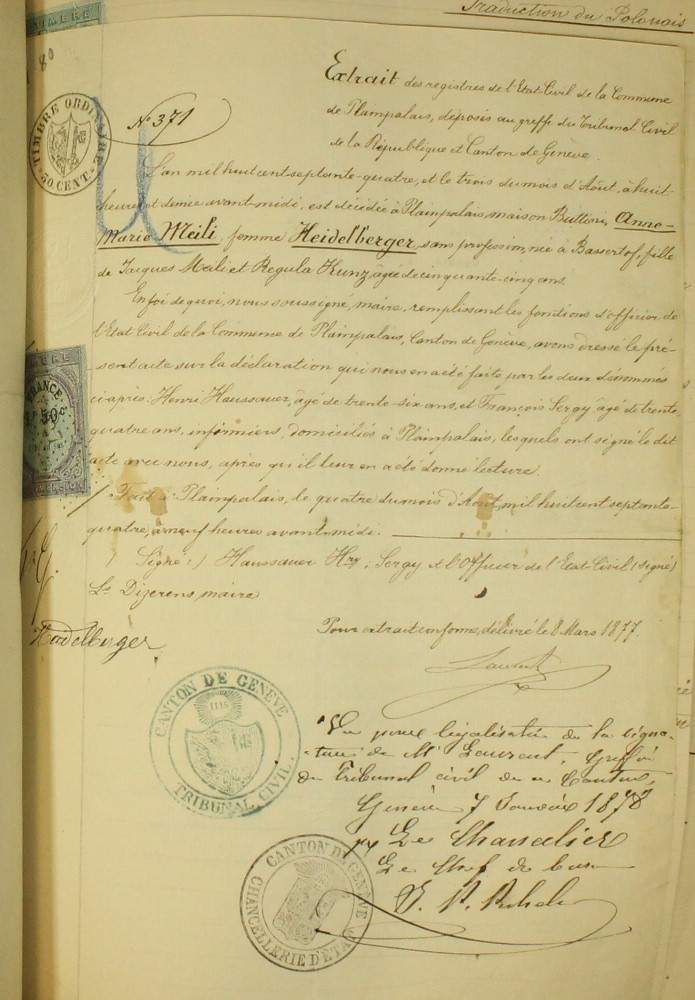 Traduction du Polonais
TIMBRE ORDINAIRE
50 CENT.
No 371
Extrait des registres de l'Etat-Civil de la Commune
de Plainpalais, déposés au greffe du Tribunal Civil
de la République et Canton de Genève.
L'an mil huit cent septante-quatre, et le trois du mois d'Août, à huit
heures et demie avant-midi, est décédée à Plainpalais, maison Buttion, Anne-
Marie Meili, femme Heidelberger, sans profession, née à Bassertof, fille
de Jacques Meili et Regula Kunz, âgée de cinquante-cinq ans.
En foi de quoi, nous soussigné, maire, remplissant les fonctions d'officier de
l'Etat Civil de la Commune de Plainpalais, Canton de Genève, avons dressé le pré-
sent acte sur la déclaration qui nous en a été faite par les deux dénommés
ci après: Henri Haussauer, âgé de trente-six ans, et François Sergy âgé de trente
quatre ans, infirmiers, domiciliés à Plainpalais, lesquels ont signé le dit
acte avec nous, après qu'il leur en a été donné lecture.
Fait à Plainpalais, le quatre du mois d'Août, mil huit cent septante-
quatre, à neuf heures avant-midi.
Signé:) Haussauer Hry, Sergy et l'Officier de l'Etat-Civil (signé)
Ls Dizerens maire
Pour extrait conforme, délivré le 8 Mars 1877.
Laurent
Heidelberger
CANTON DE GENÈVE
TRIBUNAL CIVIL
Vu pour légalisation de la signa-
ture de Mr Laurent, Greffier
du Tribunal civil de ce Canton,
Genève 7 Janvier 1878
Le Chancelier
Le Chef de bureau
CANTON DE GENÈVE
CHANCELLERIE D'ÉTAT
FRANCE
50c